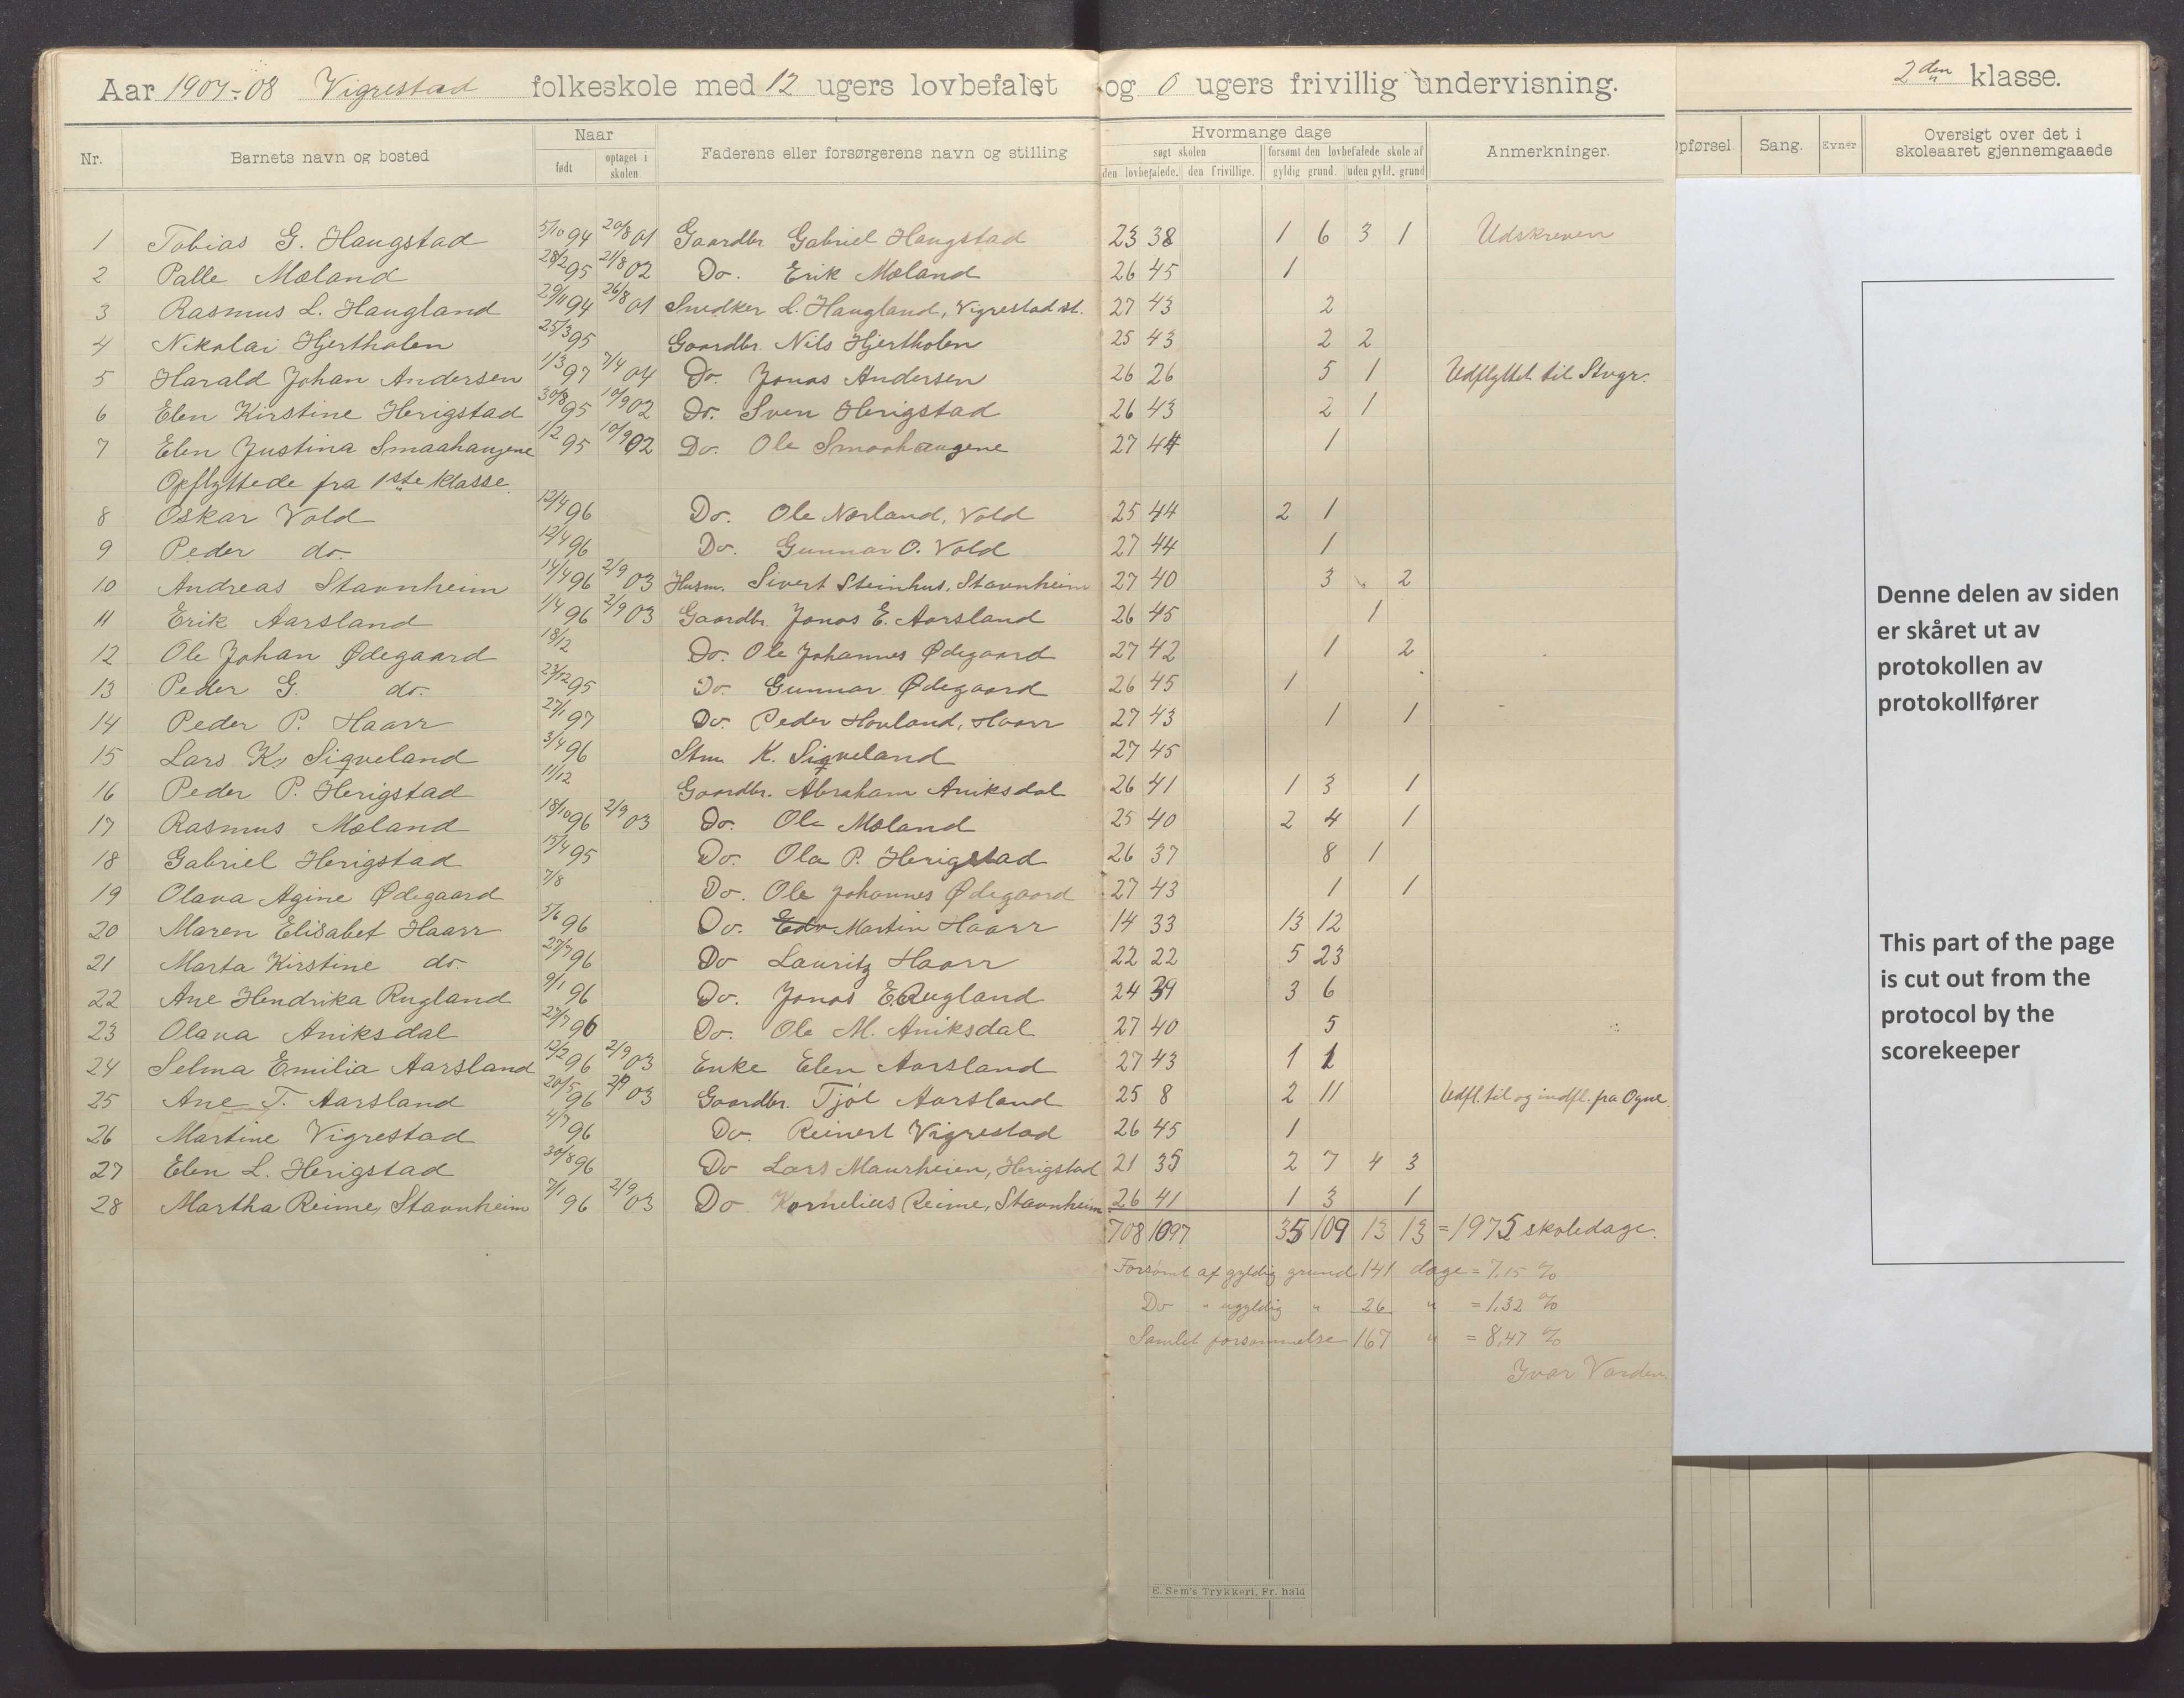 Aar 1907-08 Vigrestad folkeskole med 12 ugers lovbefalet og 0 ugers frivillig undervisning. 2den klasse.
Nr. Barnets navn og bosted Naar født optaget i skolen. Faderens eller forsørgerens navn og stilling Hvormange dage søgt skolen den lovbefalede. den frivillige. forsømt den lovbefalede skole af gyldig grund. uden gyld. grund Anmerkninger. Opførsel Sang. Evner Oversigt over det i skoleaaret gjennemgaaede
1 Tobias G. Haugstad 5/10 94 20/8 01 Gaardbr Gabriel Haugstad 23 38 1 6 3 1 Udskreven
2 Palle Mæland 28/2 95 21/8 02 Do. Erik Mæland 26 45 1
3 Rasmus L. Haugland 29/11 94 26/8 01 Snedker L. Haugland, Vigrestad st. 27 43 2
4 Nikolai Hjertholen 25/3 95 Gaardbr. Nils Hjertholen 25 43 2 2
5 Harald Johan Andersen 1/3 97 7/4 04 Do. Jonas Andersen 26 26 5 1 Udflyttet til Stvgr.
6 Elen Kirstine Herigstad 30/8 95 10/9 02 Do. Sven Herigstad 26 43 2 1
7 Elen Justina Smaahaugene 1/2 95 10/9 02 Do. Ole Smaahaugene 27 44 1
Opflyttede fra 1ste klasse.
8 Oskar Vold 12/4 96 Do. Ole Nørland, Vold 25 44 2 1
9 Peder do. 12/4 96 Do. Gunnar O. Vold 27 44 1
10 Andreas Stavnheim 14/4 96 2/9 03 Husm. Sivert Steinhus, Stavnheim 27 40 3 2
11 Erik Aarsland 1/4 96 2/9 03 Gaardbr. Jonas E. Aarsland 26 45 1
12 Ole Johan Ødegaard 18/12 Do. Ole Johannes Ødegaard 27 42 1 2
13 Peder G. do. 23/12 95 Do. Gunnar Ødegaard 26 45 1
14 Peder P. Haarr 27/1 97 Do. Peder Hovland, Haarr 27 43 1 1
15 Lars K. Siqveland 3/4 96 Stm. K. Siqveland 27 45
16 Peder P. Herigstad 11/12 Gaardbr. Abraham Aniksdal 26 41 1 3 1
17 Rasmus Mæland 18/10 96 2/9 03 Do. Ole Mæland 25 40 2 4 1
18 Gabriel Herigstad 15/4 95 Do. Ola P. Herigstad 26 37 8 1
19 Olava Agine Ødegaard 7/8 Do. Ole Johannes Ødegaard 27 43 1 1
20 Maren Elisabet Haarr 5/6 96 Do. Edv Martin Haarr 14 33 13 12
21 Marta Kirstine do. 27/7 96 Do Lauritz Haarr 22 22 5 23
22 Ane Hendrika Rugland 9/1 96 Do. Jonas E. Rugland 24 39 3 6
23 Olava Aniksdal 27/7 96 Do. Ole M. Aniksdal 27 40 5
24 Selma Emilia Aarsland 12/2 96 2/9 03 Enke Elen Aarsland 27 43 1 1
25 Ane T. Aarsland 20/5 96 2/9 03 Gaardbr. Tjøl Aarsland 25 8 2 11 Udfl. til og indfl. fra Ogne.
26 Martine Vigrestad 4/7 96 Do. Reinert Vigrestad 26 45 1
27 Elen L. Herigstad 30/8 96 Do Lars Maurheien, Herigstad 21 35 2 7 4 3
28 Martha Reime, Stavnheim 7/1 96 2/9 03 Do Kornelius Reime, Stavnheim 26 41 1 3 1
708 1097 35 109 13 13 = 1975 skoledage.
Forsømt af gyldig grund 141 dage = 7,15 %
Do " ugyldig " 26 " = 1,32 %
Samlet forsømmelse 167 " = 8,47 %
Ivar Varden.
E. Sem's Trykkeri, Fr. hald
Denne delen av siden
er skåret ut av
protokollen av
protokollfører
This part of the page
is cut out from the
protocol by the
scorekeeper